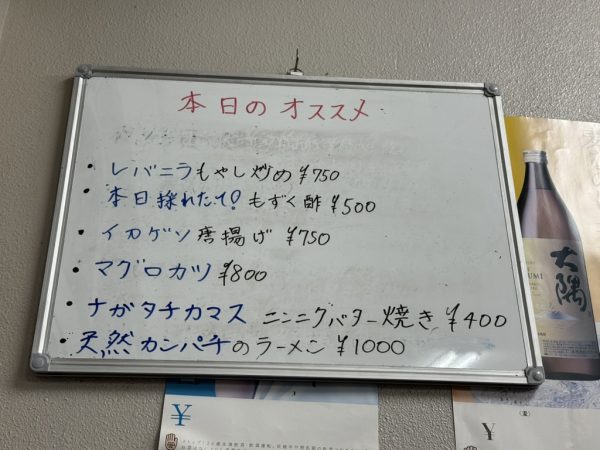 本日のオススメ
・レバニラもやし炒め ¥750
・本日採れたて!もずく酢 ¥500
・イカゲソ唐揚げ ¥750
・マグロカツ ¥800
・ナガタチカマス ニンニクバター焼き ¥400
・天然カンパチのラーメン ¥1000
大隅
¥
¥